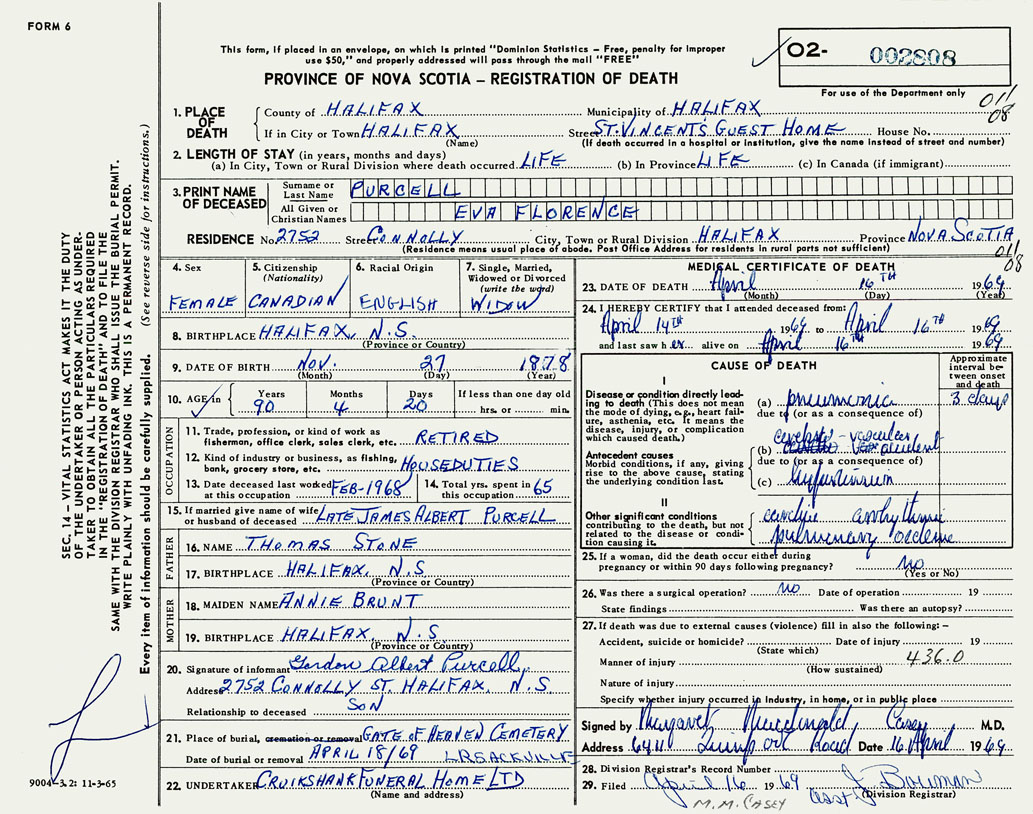 FORM 6
This form, if placed in an envelope, on which is printed "Dominion Statistics – Free, penalty for improper
use $50," and properly addressed will pass through the mail "FREE"
PROVINCE OF NOVA SCOTIA – REGISTRATION OF DEATH
O2- 002808
For use of the Department only
011/08
1. PLACE OF DEATH
County of HALIFAX Municipality of HALIFAX
If in City or Town HALIFAX Street ST. VINCENTS GUEST HOME House No.
(Name) (If death occurred in a hospital or institution, give the name instead of street and number)
2. LENGTH OF STAY (in years, months and days)
(a) In City, Town or Rural Division where death occurred. LIFE (b) In Province LIFE (c) In Canada (if immigrant)
3. PRINT NAME OF DECEASED
Surname or Last Name PURCELL
All Given or Christian Names EVA FLORENCE
RESIDENCE No. 2752 Street CONNOLLY City, Town or Rural Division HALIFAX Province NOVA SCOTIA
(Residence means usual place of abode. Post Office Address for residents in rural parts not sufficient)
011/08
4. Sex FEMALE
5. Citizenship (Nationality) CANADIAN
6. Racial Origin ENGLISH
7. Single, Married, Widowed or Divorced (write the word) WIDOW
8. BIRTHPLACE HALIFAX, N.S.
(Province or Country)
9. DATE OF BIRTH NOV. 27 1878
(Month) (Day) (Year)
10. AGE in Years 90 Months 4 Days 20 If less than one day old hrs. or min.
OCCUPATION
11. Trade, profession, or kind of work as fisherman, office clerk, sales clerk, etc. RETIRED
12. Kind of industry or business, as fishing, bank, grocery store, etc. HOUSEDUTIES
13. Date deceased last worked at this occupation FEB-1968 14. Total yrs. spent in this occupation 65
15. If married give name of wife or husband of deceased LATE JAMES ALBERT PURCELL
FATHER
16. NAME THOMAS STONE
17. BIRTHPLACE HALIFAX, N.S
(Province or Country)
MOTHER
18. MAIDEN NAME ANNIE BRUNT
19. BIRTHPLACE HALIFAX, N.S
(Province or Country)
20. Signature of informant Gordon Albert Purcell
Address 2752 CONNOLLY ST. HALIFAX, N.S.
Relationship to deceased SON
21. Place of burial, cremation or removal GATE OF HEAVEN CEMETERY
Date of burial or removal APRIL 18/69 LR SACKVILLE
22. UNDERTAKER CRUIKSHANK FUNERAL HOME LTD
(Name and address)
MEDICAL CERTIFICATE OF DEATH
23. DATE OF DEATH April 16TH 1969
(Month) (Day) (Year)
24. I HEREBY CERTIFY that I attended deceased from:
April 14th 1969 to April 16TH 1969
and last saw her alive on April 16th 1969
CAUSE OF DEATH
Approximate interval between onset and death
I
Disease or condition directly leading to death (This does not mean the mode of dying, e.g., heart failure, asthenia, etc. It means the disease, injury, or complication which caused death.)
(a) pneumonia 3 days
due to (or as a consequence of)
Antecedent causes
Morbid conditions, if any, giving rise to the above cause, stating the underlying condition last.
(b) cerebro-vascular accident
due to (or as a consequence of)
(c)
II
Other significant conditions contributing to the death, but not related to the disease or condition causing it.
cardiac arrhythmia
pulmonary oedema
25. If a woman, did the death occur either during pregnancy or within 90 days following pregnancy? no
(Yes or No)
26. Was there a surgical operation? no Date of operation 19
State findings Was there an autopsy?
27. If death was due to external causes (violence) fill in also the following: –
Accident, suicide or homicide? Date of injury 19
(State which)
Manner of injury 436.0
(How sustained)
Nature of injury
Specify whether injury occurred in Industry, in home, or in public place
Signed by Margaret Casey M.D.
Address 6411 Road Date 16 April 1969
28. Division Registrar's Record Number
29. Filed April 16 1969 Asst J Bowman
(Division Registrar)
M.M. CASEY
SEC. 14 – VITAL STATISTICS ACT MAKES IT THE DUTY
OF THE UNDERTAKER OR PERSON ACTING AS UNDER-
TAKER TO OBTAIN ALL THE PARTICULARS REQUIRED
IN THE "REGISTRATION OF DEATH" AND TO FILE THE
SAME WITH THE DIVISION REGISTRAR WHO SHALL ISSUE THE BURIAL PERMIT.
WRITE PLAINLY WITH UNFADING INK. THIS IS A PERMANENT RECORD.
Every item of information should be carefully supplied. (See reverse side for instructions.)
9004–3.2: 11-3-65